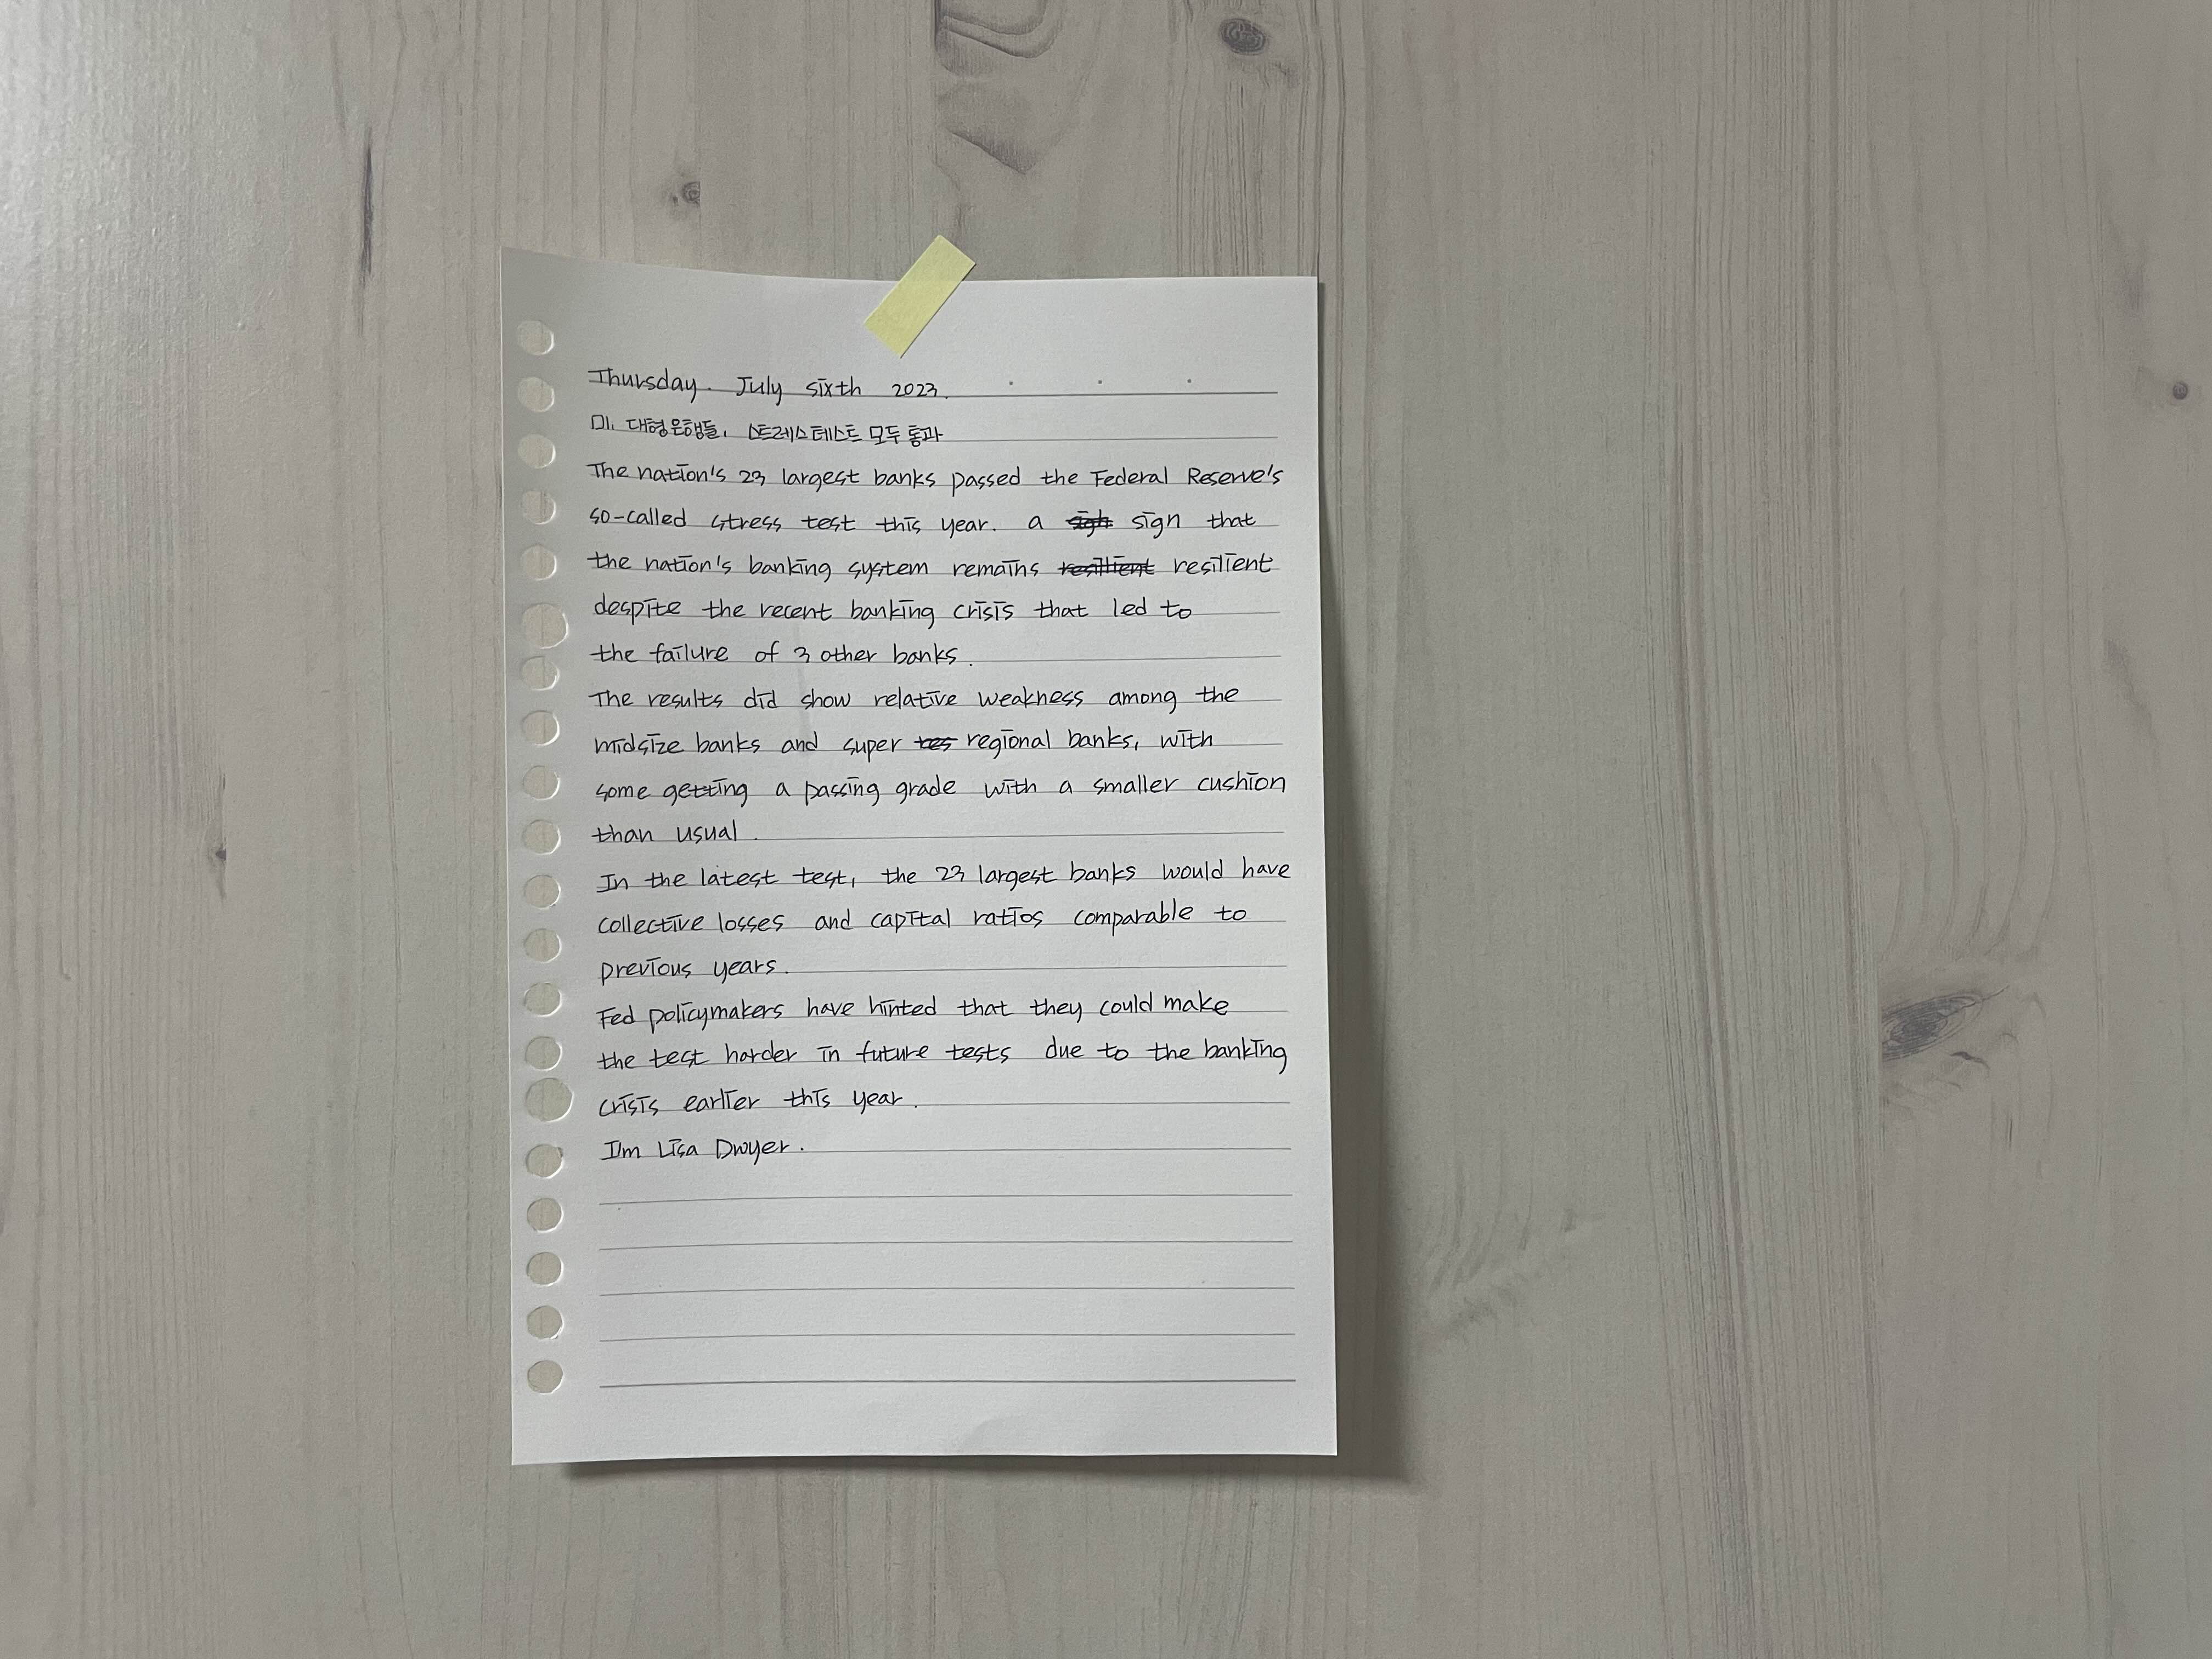 Thursday. July sixth 2023.
미. 대형은행들, 스트레스테스트 모두 통과
The nation's 23 largest banks passed the Federal Reserve's
so-called stress test this year. a sigh sign that
the nation's banking system remains resillient resilient
despite the recent banking crisis that led to
the failure of 3 other banks.
The results did show relative weakness among the
midsize banks and super res regional banks, with
some getting a passing grade with a smaller cushion
than usual.
In the latest test, the 23 largest banks would have
collective losses and capital ratios comparable to
previous years.
Fed policymakers have hinted that they could make
the test harder in future tests due to the banking
crisis earlier this year.
I'm Lisa Dwyer.